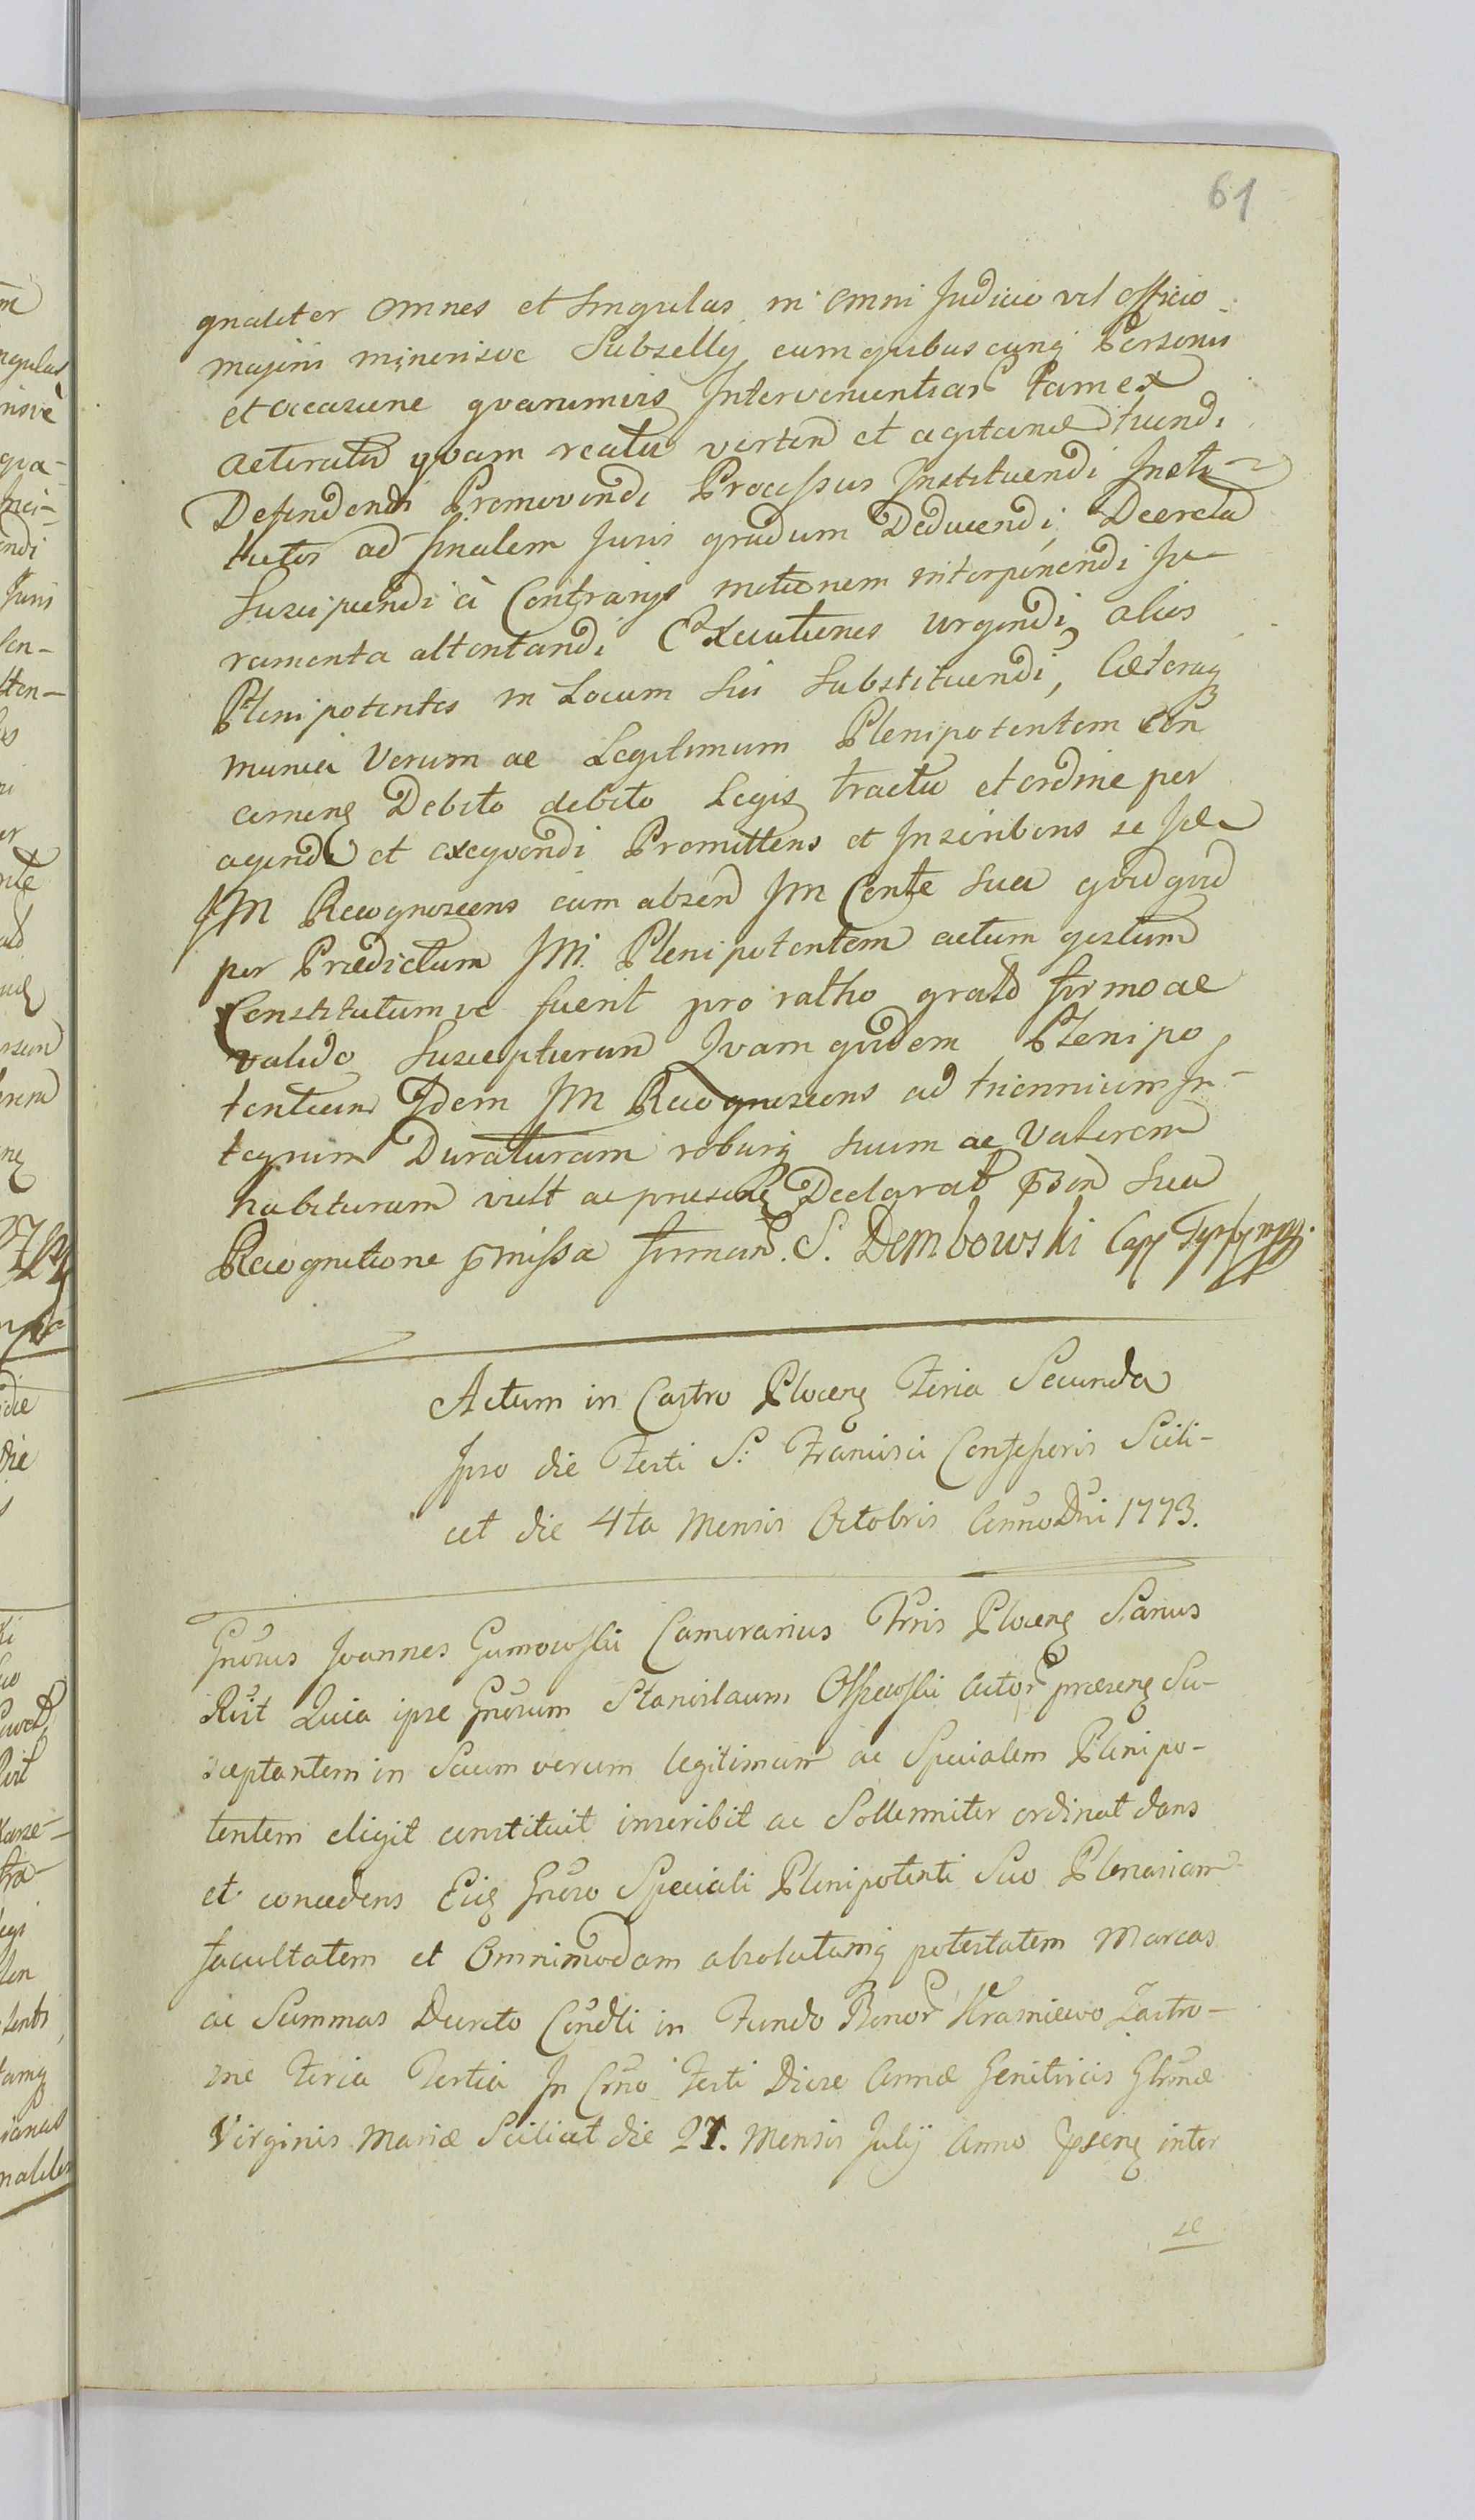 61
gnaliter omnes et singulas in omni Judicio vel officio
majoris minorisve Subsellÿ cum quibuscunq Personis
et occasione quarumvis Interveniential tam ex
Actoratu quam reatu verten et agitand tuendi
Defendendi Promovendi Processus Instituendi Insti-
tutos ad finalem Juris gradum Deducendi, Decreta
Suscipiendi à Contrarijs motionem interponendi Ju-
ramenta attentandi Executiones urgendi alios
Plenipotentes in Locum sui Substituendi, Caeteraq
munia Verum ac Legitimum Plenipotentem Con
cernens Debito debito Legis tractu et ordine per
agendi et exequendi Promittens et Inscribens se Ide
JM Recognoscens eum absen JM Conte sua quidquid
per Praedictum JM Plenipotentem actum gestum
Constitutumve fuerit pro ratho grato firmo ac
valido Suscepturum Quam quidem Plenipo
tentiam Idem JM Recognoscens ad triennium In-
tegrum Duraturam roburq suum ac Valorem
habituram vult ac praesenq Declarat pson sua
Recognitione pmissa firman. S. Dembowski Cap
Actum in Castro Plocenq Feria Secunda
Ipso die Festi S: Francisci Confessoris Scili-
cet die 4ta Mensis Octobris Anno Dni 1773.
Gnosus Joannes Gumowski Camerarius Trris Plocenq Sanus
Rūt Quia ipse Gnosum Stanislaum Olszewski Actor praesenq Su-
sceptantem in Suum verum legitimum ac Specialem Plenipo-
tentem eligit constituit inscribit ac Sollenniter ordinat dans
et concedens Eidq Gnoso Speciali Plenipotenti Suo Plenariam
facultatem et Omnimodam absolutamq potestatem Marcas
ac Summas Decreto Condti in Fundo Bonor Krasniewo Zastro-
zne Feria Tertia In Crno Festi Divae Annae Genitricis Glōnae
Virginis Mariae Scilicet die 27. Mensis Julÿ Anno psenq inter
se